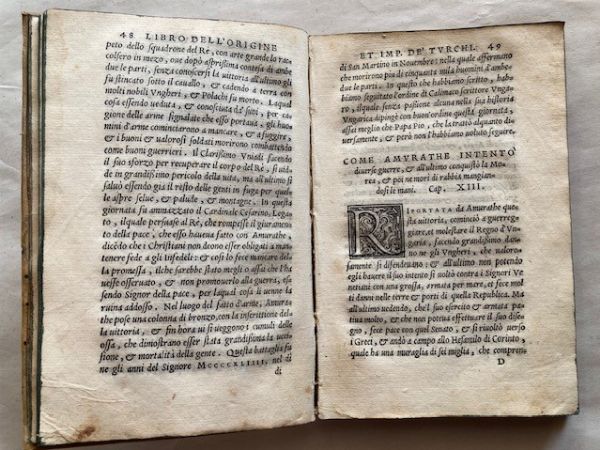 48 LIBRO DELL'ORIGINE
peto dello squadrone del Re, con arte grande lo rac-
colsero in mezo, oue dopò asprissima contesa di ambe
due le parti, senza conoscersi la uittoria all'ultimo gli
fu stincato sotto il cauallo, & cadendo a terra con
molti nobili Vngheri, & Polachi fu morto. La qual
cosa essendo ueduta, & conosciuta da' suoi, per ca-
gione delle arme segnalate che essi portaua, gli huomi
ni d'arme cominciarono a mancare, & a fuggire,
& i buoni & ualorosi soldati morirono combattendo
come buoni guerrieri. Il Clarissimo Vniadi facendo
il suo sforzo per recuperare il corpo del Rè, si uide
in grandissimo pericolo della uita, ma all'ultimo si
saluò essendo gia il resto delle genti in fuga per quel-
le aspre selue, & palude, & montagne. In questa
giornata fu ammazzato il Cardinale Cesarino, Lega
to, ilquale persuase il Rè, che rompesse il giuramento
della pace, che esso haueua fatto con Amurathe,
dicēdo che i Christiani non deono esser obligati a man
tenere fede a gli infedeli: & così lo fece mancare del
la promessa, ilche sarebbe stato meglio assai che l'ha
uesse osseruato, & non prontouerlo alla guerra, es-
sendo Signor della pace, per laqual cosa ui uenne la
ruina addosso. Nel luogo del fatto d'arme, Amura
the pose una colonna di bronzo, con la inscrittione del
la uittoria, & fin hora ui si ueggono i cumuli delle
ossa, che dimostrano esser stata grandissima la ucci-
sione, & mortalità della gente. Questa battaglia fu
ne gli anni del Signore MCCCCXLIIII. nel dì
di
ET IMP. DE' TVRCHI. 49
di San Martino in Nouembre: nella quale affermano
che morirono piu di cinquanta mila huomini d'ambe-
due le parti. In questo che habbiamo scritto, hab-
biamo seguitato l'ordine di Calimaco scrittore Vnga-
ro, ilquale senza passione alcuna nella sua historia
Vngarica dipinge con buon'ordine questa giornata,
assai meglio che Papa Pio, che la trattò alquanto di-
uersamente, & però non l'habbiamo uoluto seguire.
COME AMVRATHE INTENTÒ
diuerse guerre, & all'ultimo conquistò la Mo-
rea, & poi ne morì di rabbia mangian-
dosi le mani. Cap. XIII.
RIPORTATA da Amurathe que
sta uittoria, cominciò a guerreg-
giare, et molestare il Regno d'Vn-
gheria, facendo grandissimo dan-
no ne gli Vngheri, che ualoro-
samente si difendeuano: & all'ultimo non potendo
egli hauere il suo intento si uoltò contra i Signori Ve
netiani con una grossa, armata per mare, et fece mol
ti danni nelle terre & porti di quella Republica. Ma
all'ultimo uedendo, che'l suo esercito & armata pa
tiua molto, & che non poteua effettuare il suo dise-
gno, fece pace con quel Senato, & si riuoltò uerso
i Greci, & andò a campo allo Hesamilo di Corinto,
quale ha una muraglia di sei miglia, che compren-
D